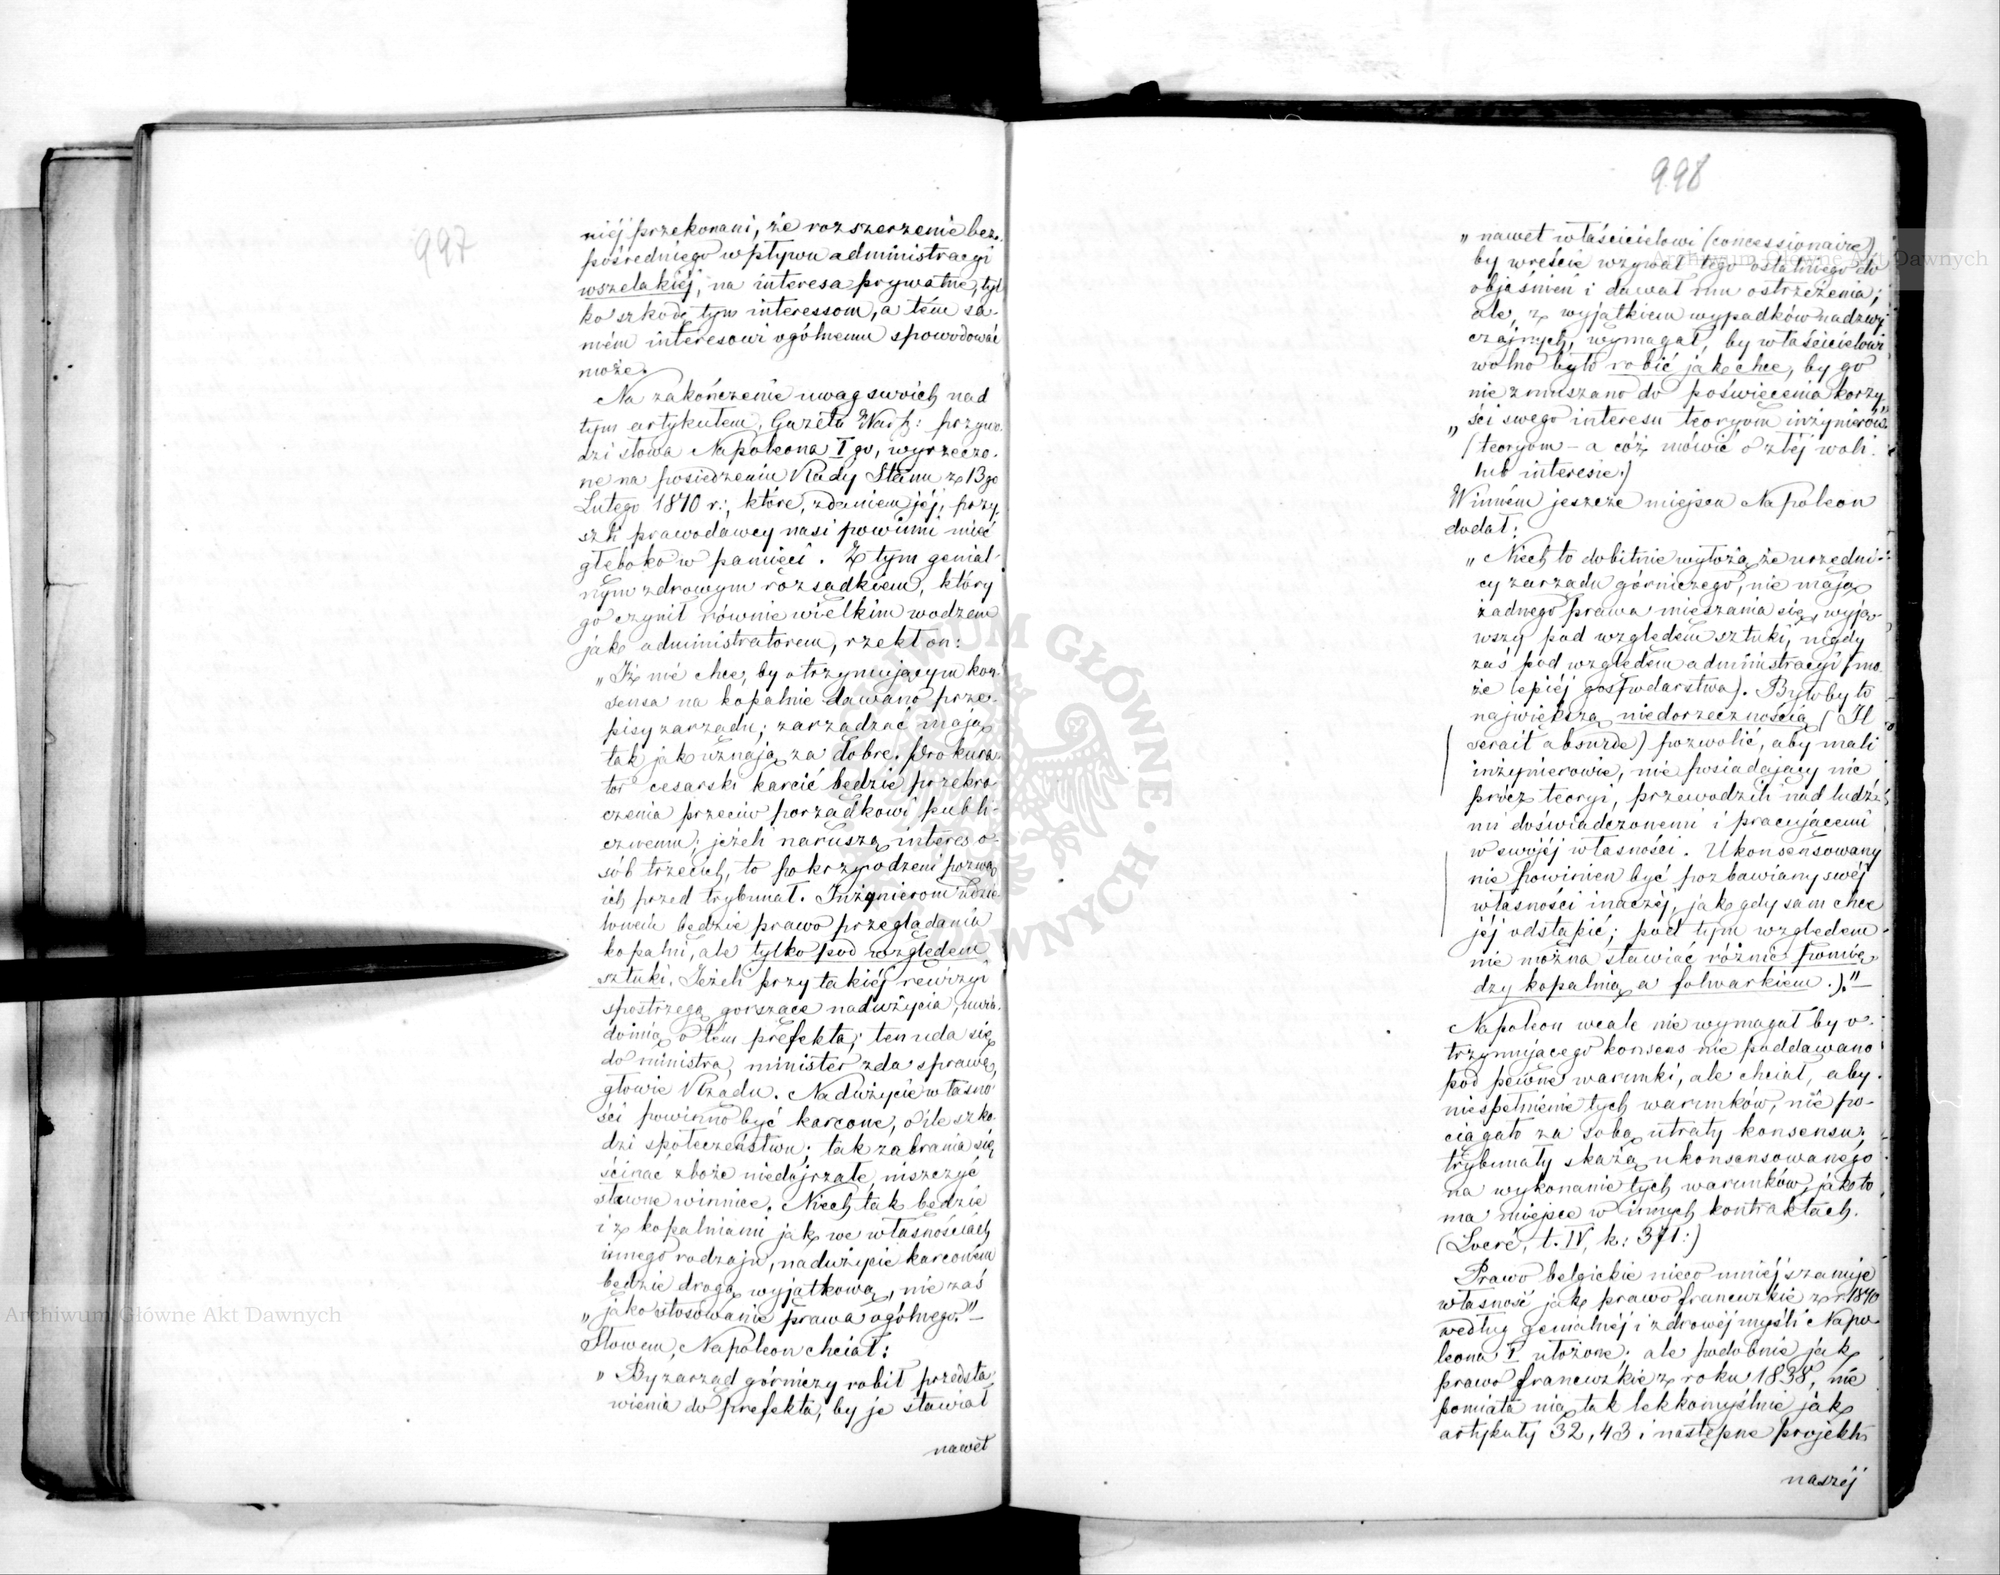 997
niéj przekonani, że rozszerzenie bez-
pośredniego wpływu administracyi
wszelakiéj, na interesa prywatne, tyl
ko szkodę tym interessom, a tém sa-
mém interesowi ogólnemu spowodować
może.
Na zakończenie uwag swoich nad
tym artykułem, Gazeta Warsz: przywo
dzi słowa Napoleona I go, wyrzeczo-
ne na posiedzeniu Rady Stanu z 13go
Lutego 1810 r:, które, zdaniem jéj, przy
szli prawodawcy nasi powinni mieć
głęboko w pamięci. Z tym genial-
nym zdrowym rozsądkiem, który
go czynił równie wielkim wodzem
jak administratorem, rzekł on:
„Ja nie chcę, by otrzymującym kon
sensa na kopalnie dawano prze-
pisy zarządu; zarządzać mają
tak jak uznają za dobre. Prokura
tor cesarski karcić będzie przekro
czenia przeciw porządkowi publi-
cznemu; jeżeli naruszą interes o-
sób trzecich, to pokrzywdzeni pozwą
ich przed trybunał. Inżynierom udzie
loném będzie prawo przeglądania
kopalni, ale tylko pod względem
sztuki. Jeżeli przy takiéj rewizyi
spostrzegą gorszące nadużycia, uwia
domią o tém prefekta; ten uda się
do ministra, minister zda sprawę
głowie Rządu. Nadużycie własno
ści powinno być karcone, o ile szko
dzi społeczeństwu; tak zabrania się
ścinać zboże niedojrzałe, niszczyć
sławne winnice. Niech tak będzie
i z kopalniami jak we własnościach
innego rodzaju, nadużycie karconém
będzie drogą wyjątkową, nie zaś
„jako stosowanie prawa ogólnego."—
Słowem, Napoleon chciał:
„By zarząd górniczy robił przedsta
wienia do prefekta, by je stawiał
nawet
998
„nawet właścicielowi (concessionaire)
by wreście wzywał tego ostatniego do
objaśnień i dawał mu ostrzeżenia;
ale, z wyjątkiem wypadków nadzwy
czajnych, wymagał, by właścicielowi
wolno było robić jak chce, by go
nie zmuszano do poświęcenia korzy
„ści swego interesu teoryom inżynierów"
(teoryom – a cóż mówić o złéj woli
lub interesie.)
W inném jeszcze miejscu Napoleon
dodał:
„Niech to dobitnie wyłożą, że urzędni-
cy zarządu górniczego, nie mają
żadnego prawa mieszania się, wyją-
wszy pod względem sztuki, nigdy
zaś pod względem administracyi (mo
że lepiéj gospodarstwa). Byłoby to
największą niedorzecznością (Il
serait absurde) pozwolić, aby mali
inżynierowie, nie posiadający nic
prócz teoryi, przewodzili nad ludź
mi doświadczonemi i pracującemi
w swojéj własności. Ukonsensowany
nie powinien być pozbawiany swéj
własności inaczéj, jak gdy sam chce
jéj odstąpić; pod tym względem
nie można stawiać różnic pomię
dzy kopalnią a folwarkiem.)."—
Napoleon wcale nie wymagał by o-
trzymującego konsens nie poddawano
pod pewne warunki, ale chciał, aby
niespełnienie tych warunków, nie po-
ciągało za sobą utraty konsensu;
trybunały skażą ukonsensowanego
na wykonanie tych warunków, jak to
ma miejsce w innych kontraktach.
(Locré, t. IV, k: 371:)
Prawo belgickie nieco mniéj szanuje
własność jak prawo francuzkie z r. 1810
według genialnéj i zdrowéj myśli Napo-
leona I ułożone; ale podobnie jak
prawo francuzkie z roku 1838, nie
pomiata nią tak lekkomyślnie jak
artykuły 32, 43 i następne projektu
naszéj